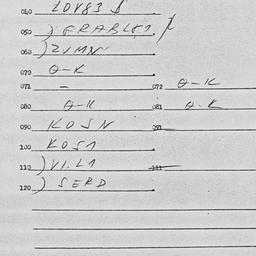 040 LOV83 $
050 ) ERABLE1.
060 ) ZVMN
070 O-K
071 - 072 O-K
080 O-K 081 O-K
090 KOSN 091
100 KOS1
110 ) VI.L1 111
120 ) SERD